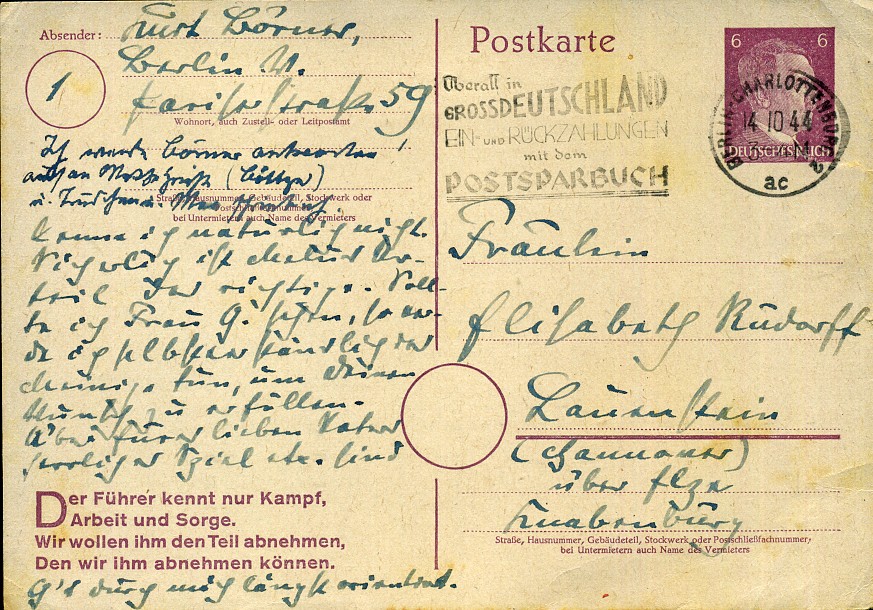 Absender: Kurt Börner,
Berlin W.
Pariserstraße 59
1
Wohnort, auch Zustell- oder Leitpostamt
Ich werde Börner antworten!
(Böttger)
Straße, Hausnummer, Gebäudeteil, Stockwerk oder
Postschließfachnummer;
bei Untermietern auch Name des Vermieters
kenne ich natürlich nicht.
ist Deine Ur-
teil das richtige. Soll-
te ich Frau G. sehen, so wer-
de ich selbstverständlich das
meinige tun, um Deinen
Wunsch zu erfüllen.
Über Eurer lieben Vater
herrliches Spiel etc. sind
Der Führer kennt nur Kampf,
Arbeit und Sorge.
Wir wollen ihm den Teil abnehmen,
Den wir ihm abnehmen können.
G's durch mich längst orientiert.
Postkarte
6 6
DEUTSCHES REICH
BERLIN-CHARLOTTENBURG 2
14 10 44
ac
Überall in
GROSSDEUTSCHLAND
EIN- UND RÜCKZAHLUNGEN
mit dem
POSTSPARBUCH
Fräulein
Elisabeth Rudorff
Lauenstein
(Hannover)
über Elze
Knabenburg
Straße, Hausnummer, Gebäudeteil, Stockwerk oder Postschließfachnummer;
bei Untermietern auch Name des Vermieters